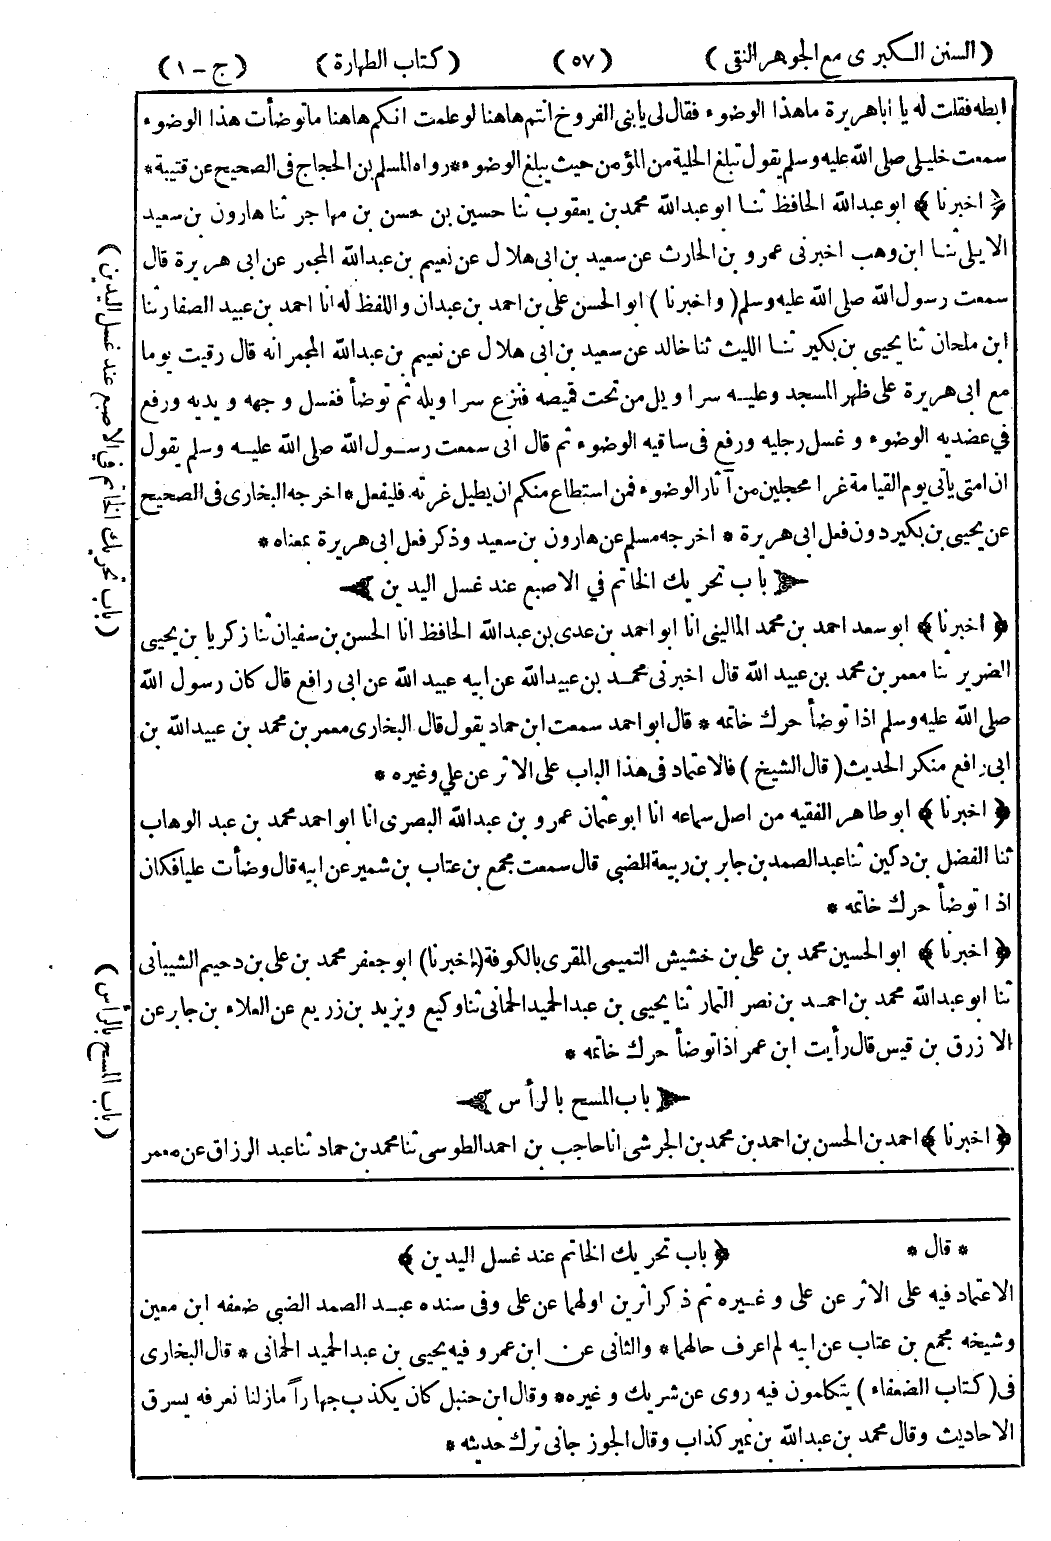 (السنن الكبرى مع الجوهر النقى) (٥٧) (كتاب الطهارة) (ج-١)
ابطه فقلت له يا اباهريرة ماهذا الوضوء فقال لى يابنى الفروخ انتم هاهنا لو علمت انكم هاهنا ماتوضأت هذا الوضوء
سمعت خليلى صلى الله عليه وسلم يقول تبلغ الحلية من المؤمن حيث يبلغ الوضوء * رواه المسلم بن الحجاج فى الصحيح عن قتيبة *
﴿ اخبرنا ﴾ ابو عبدالله الحافظ ثنا ابو عبدالله محمد بن يعقوب ثنا حسين بن حسن بن مهاجر ثنا هارون بن سعيد
الايلى ثنا ابن وهب اخبرنى عمرو بن الحارث عن سعيد بن ابى هلال عن نعيم بن عبدالله المجمر عن ابى هريرة قال
سمعت رسول الله صلى الله عليه وسلم (واخبرنا) ابو الحسن على بن احمد بن عبدان واللفظ له انا احمد بن عبيد الصفار ثنا
ابن ملحان ثنا يحيى بن بكير ثنا الليث ثنا خالد عن سعيد بن ابى هلال عن نعيم بن عبدالله المجمر انه قال رقيت يوما
مع ابى هريرة على ظهر المسجد وعليه سراويل من تحت قميصه فنزع سراويله ثم توضأ فغسل وجهه ويديه ورفع
في عضديه الوضوء وغسل رجليه ورفع فى ساقيه الوضوء ثم قال انى سمعت رسول الله صلى الله عليه وسلم يقول
ان امتى يأتى يوم القيامة غرا محجلين من آثار الوضوء فمن استطاع منكم ان يطيل غرته فليفعل * اخرجه البخارى فى الصحيح
عن يحيى بن بكير دون فعل ابى هريرة * اخرجه مسلم عن هارون بن سعيد وذكر فعل ابى هريرة بمعناه *
باب تحريك الخاتم في الاصبع عند غسل اليدين
﴿ اخبرنا ﴾ ابو سعد احمد بن محمد المالينى انا ابو احمد بن عدى بن عبدالله الحافظ انا الحسن بن سفيان ثنا زكريا بن يحيى
الضرير ثنا معمر بن محمد بن عبيد الله قال اخبرنى محمد بن عبيدالله عن ابيه عبيد الله عن ابى رافع قال كان رسول الله
صلى الله عليه وسلم اذا توضأ حرك خاتمه * قال ابو احمد سمعت ابن حماد يقول قال البخارى معمر بن محمد بن عبيدالله بن
ابى رافع منكر الحديث (قال الشيخ) فالاعتماد فى هذا الباب على الاثر عن علي وغيره *
﴿ اخبرنا ﴾ ابو طاهر الفقيه من اصل سماعه انا ابو عثمان عمرو بن عبدالله البصرى انا ابو احمد محمد بن عبد الوهاب
ثنا الفضل بن دكين ثنا عبدالصمد بن جابر بن ربيعة الضبي قال سمعت مجمع بن عتاب بن شمير عن ابيه قال وضأت عليا فكان
اذا توضأ حرك خاتمه *
﴿ اخبرنا ﴾ ابو الحسين محمد بن على بن خشيش التميمى المقرى بالكوفة (اخبرنا) ابو جعفر محمد بن على بن دحيم الشيبانى
ثنا ابو عبدالله محمد بن احمد بن نصر التمار ثنا يحيى بن عبدالحميد الحمانى ثنا وكيع ويزيد بن زريع عن العلاء بن جابر عن
الازرق بن قيس قال رأيت ابن عمر اذا توضأ حرك خاتمه *
باب المسح بالرأس
﴿ اخبرنا ﴾ احمد بن الحسن بن احمد بن محمد بن الجرشى انا حاجب بن احمد الطوسى ثنا محمد بن حماد ثنا عبد الرزاق عن معمر
* قال * ﴿ باب تحريك الخاتم عند غسل اليدين ﴾
الاعتماد فيه على الاثر عن على وغيره ثم ذكر اثرين اولهما عن على وفى سنده عبد الصمد الضبي ضعفه ابن معين
وشيخه مجمع بن عتاب عن ابيه لم اعرف حالهما * والثانى عن ابن عمر وفيه يحيى بن عبد الحميد الحمانى * قال البخارى
فى (كتاب الضعفاء) يتكلمون فيه روى عن شريك وغيره * وقال ابن حنبل كان يكذب جهاراً مازلنا نعرفه يسرق
الاحاديث وقال محمد بن عبدالله بن نمير كذاب وقال الجوزجانى ترك حديثه *
(باب تحريك الخاتم في الاصبع عند غسل اليدين)
(باب المسح بالرأس)